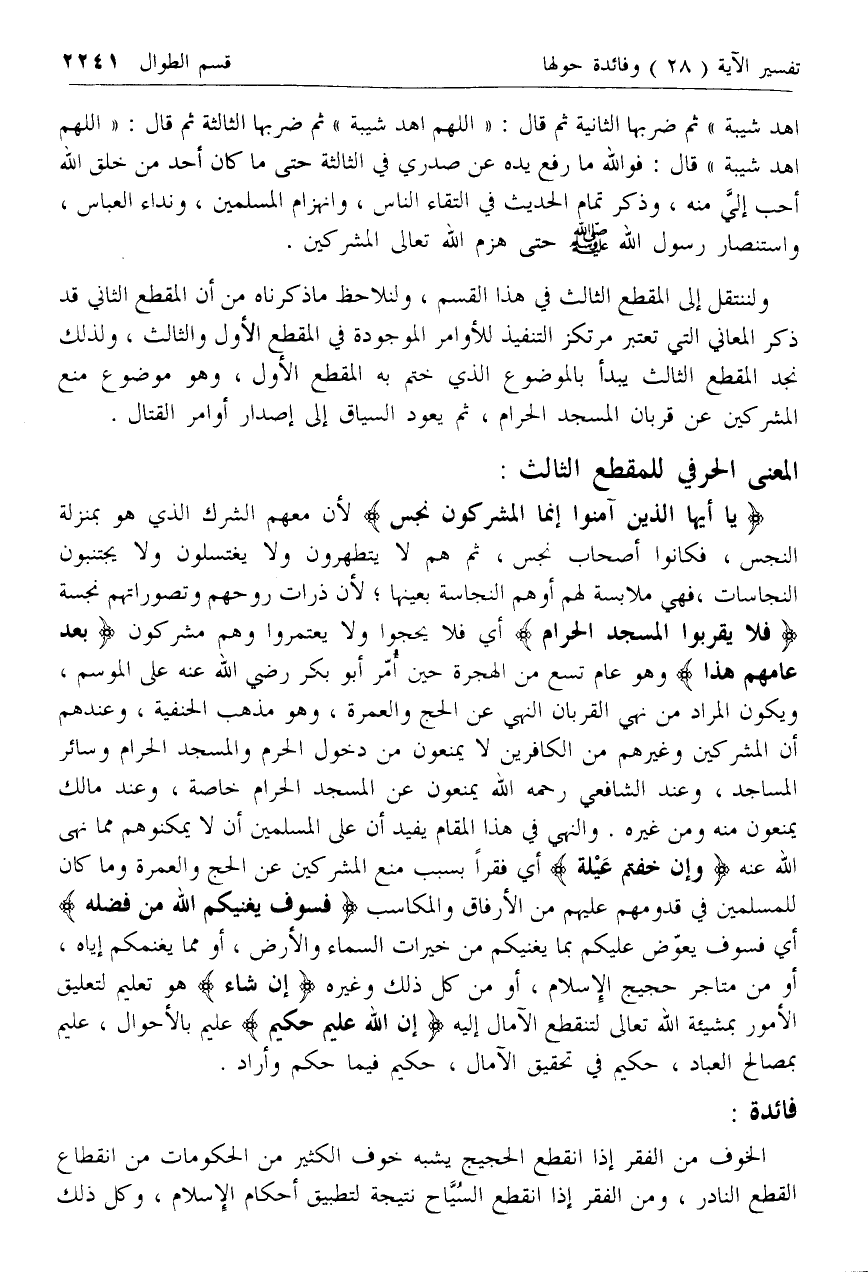 تفسير الآية ( ٢٨ ) وفائدة حولها قسم الطوال ٢٢٤١
اهد شيبة » ثم ضربها الثانية ثم قال : « اللهم اهد شيبة » ثم ضربها الثالثة ثم قال : « اللهم
اهد شيبة » قال : فوالله ما رفع يده عن صدري في الثالثة حتى ما كان أحد من خلق الله
أحب إليَّ منه ، وذكر تمام الحديث في التقاء الناس ، وانهزام المسلمين ، ونداء العباس ،
واستنصار رسول الله ﷺ حتى هزم الله تعالى المشركين .
ولننتقل إلى المقطع الثالث في هذا القسم ، ولنلاحظ ماذكرناه من أن المقطع الثاني قد
ذكر المعاني التي تعتبر مرتكز التنفيذ للأوامر الموجودة في المقطع الأول والثالث ، ولذلك
نجد المقطع الثالث يبدأ بالموضوع الذي ختم به المقطع الأول ، وهو موضوع منع
المشركين عن قربان المسجد الحرام ، ثم يعود السياق إلى إصدار أوامر القتال .
المعنى الحرفي للمقطع الثالث :
﴿ يا أيها الذين آمنوا إنما المشركون نجس ﴾ لأن معهم الشرك الذي هو بمنزلة
النجس ، فكانوا أصحاب نجس ، ثم هم لا يتطهرون ولا يغتسلون ولا يجتنبون
النجاسات ،فهي ملابسة لهم أوهم النجاسة بعينها ؛ لأن ذرات روحهم وتصوراتهم نجسة
﴿ فلا يقربوا المسجد الحرام ﴾ أي فلا يحجوا ولا يعتمروا وهم مشركون ﴿ بعد
عامهم هذا ﴾ وهو عام تسع من الهجرة حين أُمّر أبو بكر رضي الله عنه على الموسم ،
ويكون المراد من نهي القربان النهي عن الحج والعمرة ، وهو مذهب الحنفية ، وعندهم
أن المشركين وغيرهم من الكافرين لا يمنعون من دخول الحرم والمسجد الحرام وسائر
المساجد ، وعند الشافعي رحمه الله يمنعون عن المسجد الحرام خاصة ، وعند مالك
يمنعون منه ومن غيره . والنهي في هذا المقام يفيد أن على المسلمين أن لا يمكنوهم مما نهى
الله عنه ﴿ وإن خفتم عَيْلة ﴾ أي فقراً بسبب منع المشركين عن الحج والعمرة وما كان
للمسلمين في قدومهم عليهم من الأرفاق والمكاسب ﴿ فسوف يغنيكم الله من فضله ﴾
أي فسوف يعوّض عليكم بما يغنيكم من خيرات السماء والأرض ، أو مما يغنمكم إياه ،
أو من متاجر حجيج الإسلام ، أو من كل ذلك وغيره ﴿ إن شاء ﴾ هو تعليم لتعليق
الأمور بمشيئة الله تعالى لتنقطع الآمال إليه ﴿ إن الله عليم حكيم ﴾ عليم بالأحوال ، عليم
بمصالح العباد ، حكيم في تحقيق الآمال ، حكيم فيما حكم وأراد .
فائدة :
الخوف من الفقر إذا انقطع الحجيج يشبه خوف الكثير من الحكومات من انقطاع
القطع النادر ، ومن الفقر إذا انقطع السُيَّاح نتيجة لتطبيق أحكام الإسلام ، وكل ذلك